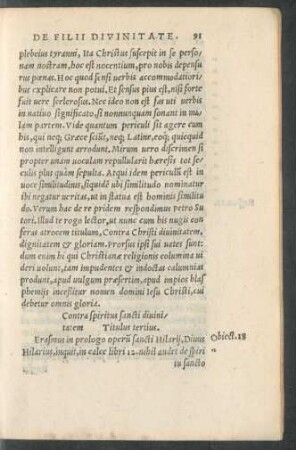 DE FILII DIVINITATE. 91
plebeius tyranni, Ita Christus suscepit in se perso/
nam nostram, hoc est nocentium, pro nobis depensu
rus pœnas. Hoc quod sensi uerbis accommodatiori/
bus explicare non potui, Et sensus pius est, nisi forte
fuit uere scelerosus. Nec ideo non est fas uti uerbis
in natiuo significato, si nonnunquam sonant in ma/
lem partem. Vide quantum periculi sit agere cum
his, qui neq; Græce sciũt, neq; Latine, eoq; quicquid
non intelligunt arrodunt. Mirum uero discrimen si
propter unam uoculam repullularit hæresis tot se/
culis plus quàm sepulta. Atqui idem periculũ est in
uoce similitudinis, siquidẽ ubi similitudo nominatur
ibi negatur ueritas, ut in statua est hominis similitu/
do. Verum hac de re pridem respondi Petro Su/
tori. Illud te rogo lector, ut nunc cum his nugis con
feras atrocem titulum, Contra Christi diuinitatem,
dignitatem & gloriam. Prorsus ipsi sui uates sunt:
dum enim hi qui Christianæ religionis columina ui
deri uolunt, tam impudentes & indoctas calumnias
produnt, apud uulgum præsertim, apud impios blas
phemijs incessitur nomen domini Iesu Christi, cui
debetur omnis gloria.
Contra spiritus sancti diuini/
tatem Titulus tertius.
Erasmus in prologo operũ sancti Hilarij, Diuus
Hilarius, inquit, in calce libri 12. nihil audet de spiri
tu sancto
Obiect. 18